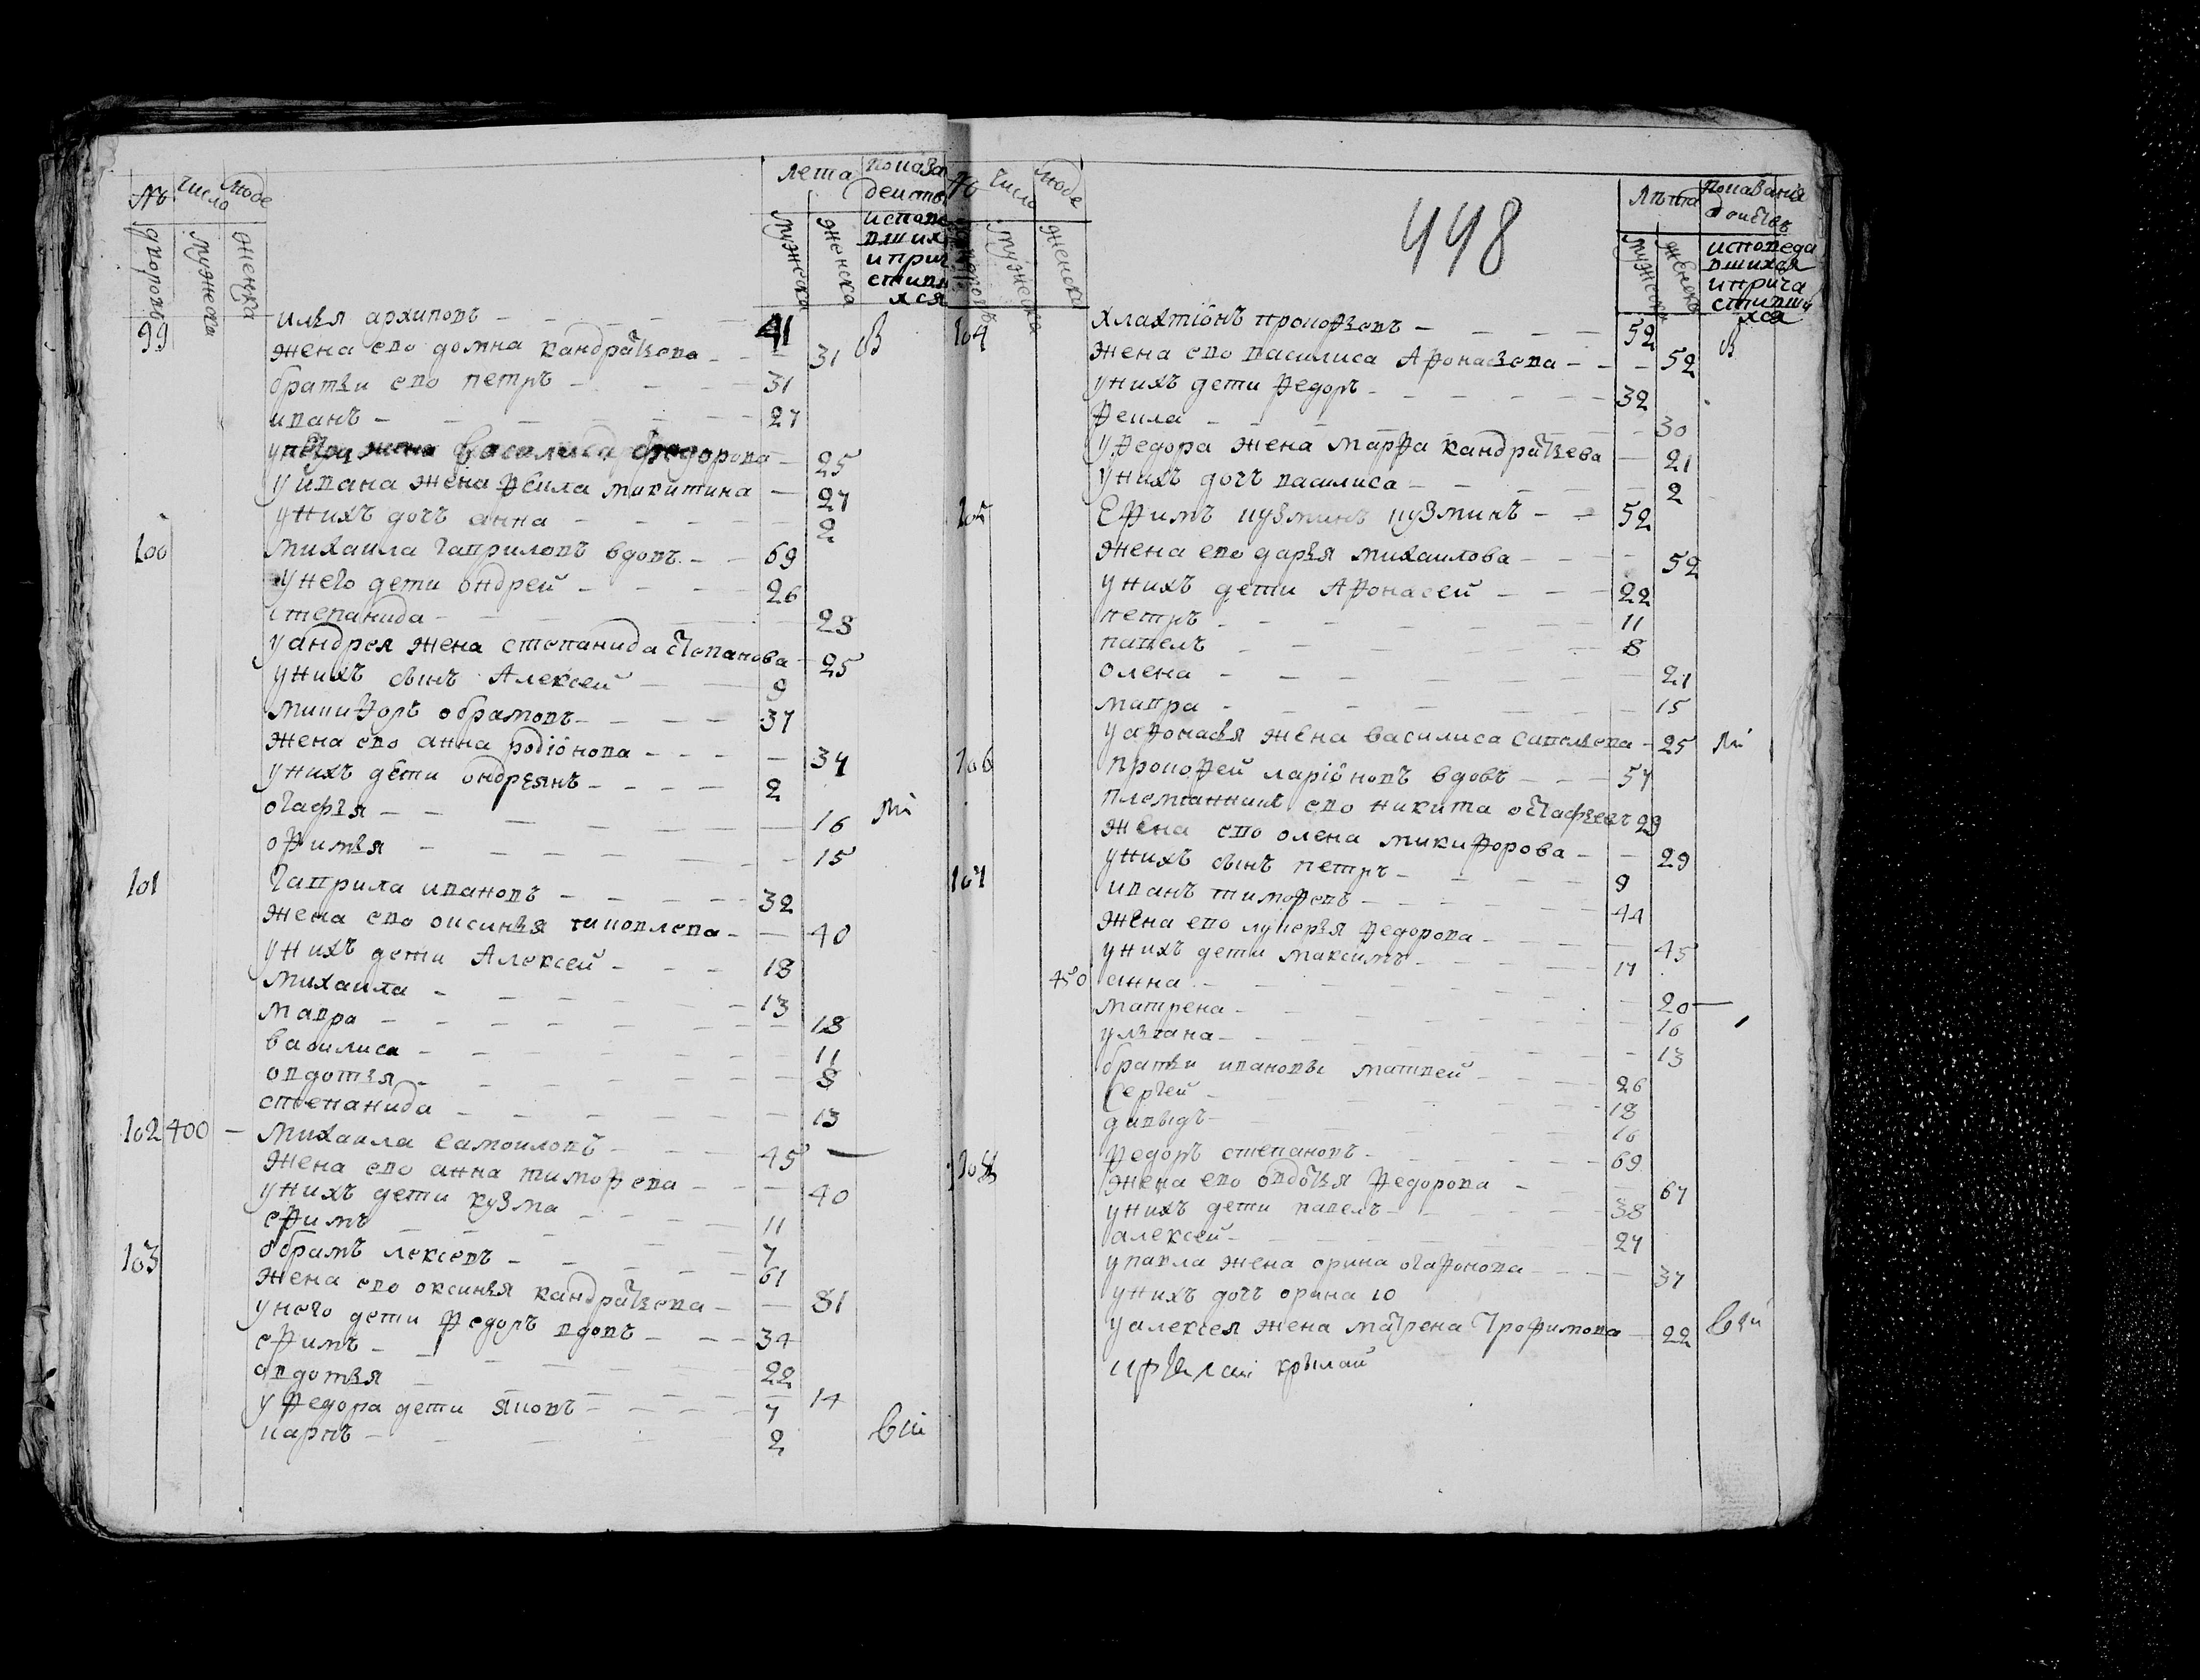 № число люде лета показа
деиств
дворовъ мужеска женска мужеска женска испове
вших
и прич
стивш
ихся
99 илья архиповъ 41
жена ево домна кандратьева 31
братьи ево петръ 31
иванъ 27
у петра жена василиса федорова 25
у ивана жена фекла микитина 27
у нихъ дочь анна 2
100 михаила гавриловъ вдовъ 69
у него дети ондрей 26
степанида 23
у андрея жена степанида степанова 25
у нихъ сынъ Алексей 9
микифоръ обрамовъ 37
жена ево анна родіонова 34
у нихъ дети ондреянъ 2
огафья 16
офимья 15
101 гаврила ивановъ 32
жена ево оксинья яковлева 40
у нихъ дети Алексей 18
михаила 13
мавра 18
василиса 11
овдотья 8
степанида 13
102 400 михаила самоиловъ 45
жена ево анна тимофева 40
у нихъ дети кузма 11
ефимъ 7
103 обрамъ лексевъ 61
жена ево оксинья кандратьева 81
у него дети федоръ вдовъ 34
ефимъ 22
овдотья 14
у федора дети яковъ 7
карпъ 2
448
№ число люде лѣта показания
мужеска женска мужеска женска исповеда
вшихся
и прича
стивши
хся
104 хлактіонъ прокофьевъ 52
жена ево василиса Афонасьева 52
у нихъ дети федоръ 32
фекла 30
у федора жена марфа кандратьева 21
у нихъ дочь василиса 2
105 Ефимъ кузминъ кузминъ 52
жена ево дарья михаилова 52
у нихъ дети Афонасей 22
петръ 11
павелъ 8
олена 21
мавра 15
у афонасья жена василиса савельева 25
106 прокофей ларіоновъ вдовъ 57
племянникъ ево никита остафьевъ 29
жена ево олена микифорова 29
у нихъ сынъ петръ 9
107 иванъ тимофевъ 44
жена ево лукерья федорова 45
у нихъ дети максимъ 17
450 анна 20
матрена 16
ульяна 13
братьи ивановы матвей 26
сергей 18
давыдъ 16
108 федоръ степановъ 69
жена ево овдотья федорова 67
у нихъ дети павелъ 38
алексей 27
у павла жена орина огафонова 37
у нихъ дочь орина 10
у алексея жена матрена трофимова 22